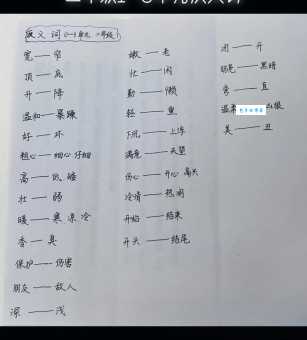 反义词 (1-8单元 二年级)
宽——窄
顶——底
升——降
温和——暴躁
好——坏
粗心——细心 仔细
高——低 矮
壮——弱
暖——寒 凉 冷
香——臭
保护——伤害
朋友——敌人
深——浅
嫩——老
忙——闲
勤——懒
轻——重
下沉——上浮
满意——失望
伤心——开心 高兴
冷清——热闹
开始——结束
开头——结尾
闭——开
明亮——黑暗
弯——直
温柔
美——丑